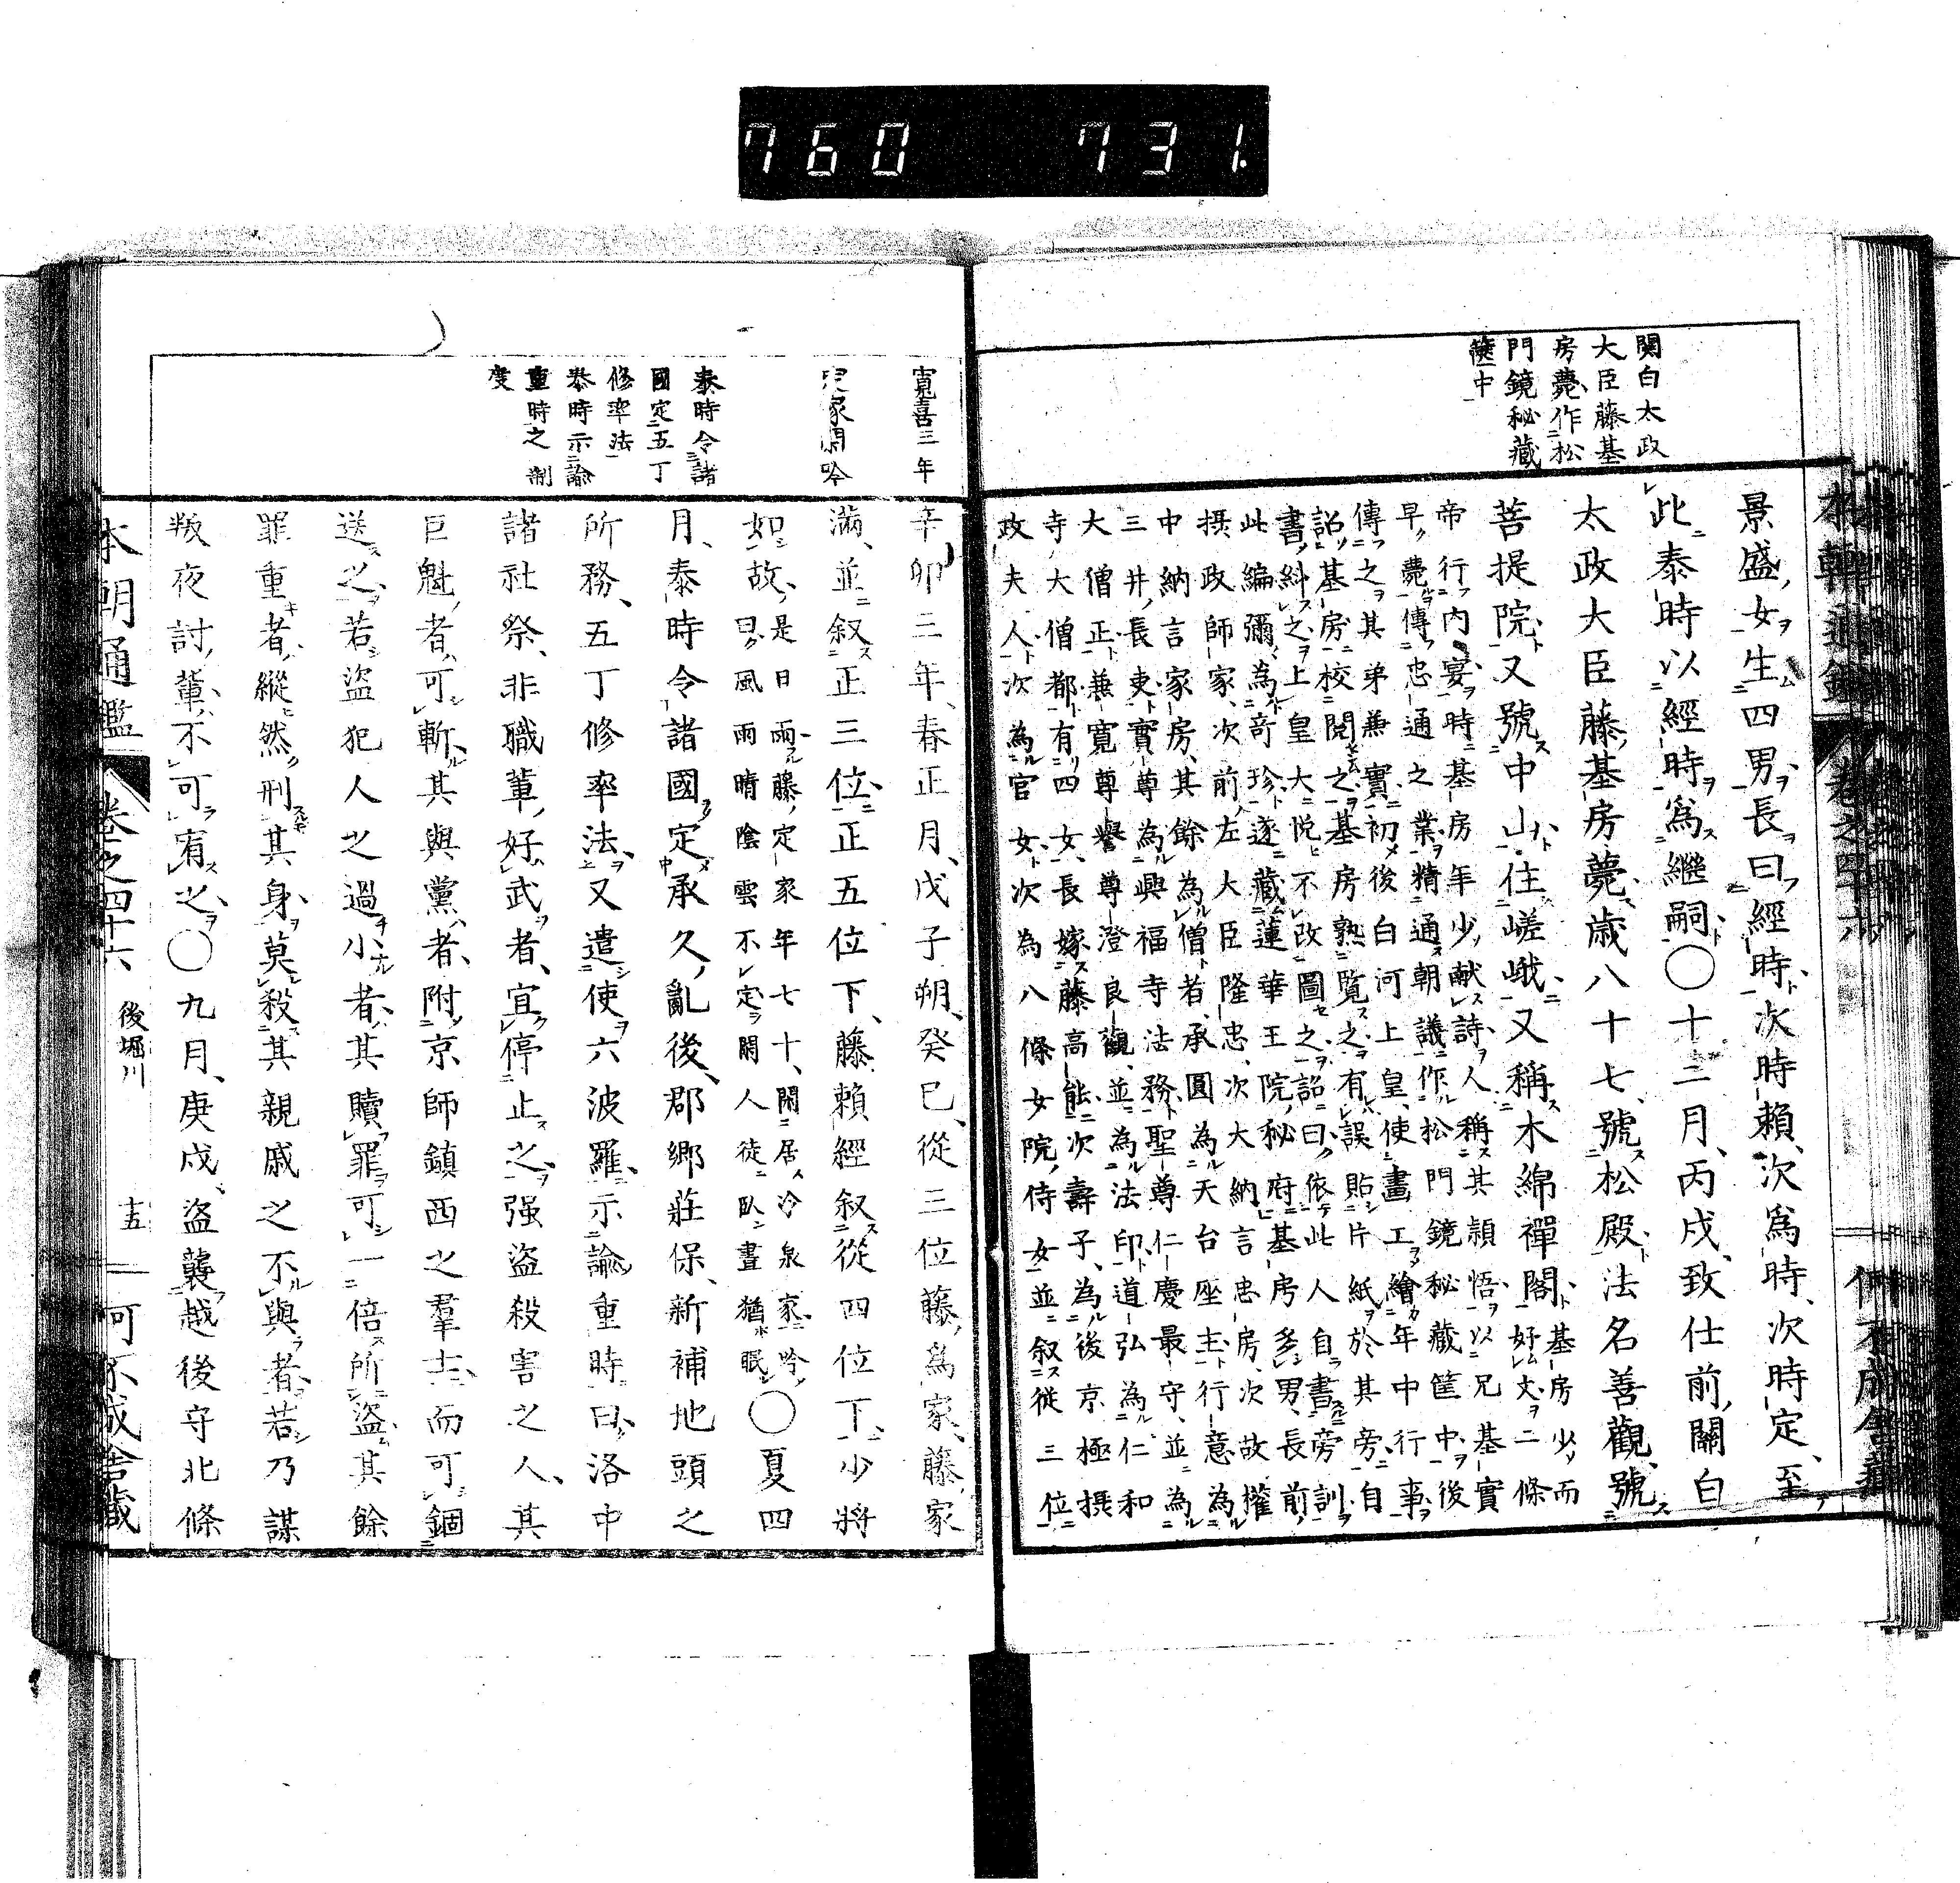 760 731.
關白太政
大臣藤基
房薨作松
門鏡秘藏
篋中
景盛女生四男長曰經時次時賴次爲時次時定至
此泰時以經時爲繼嗣〇十二月丙戌致仕前關白
太政大臣藤基房薨歲八十七號松殿法名善觀號
菩提院又號中山住嵯峨又稱木綿禪閤
基房少而
好文二條
帝行内宴時基房年少献詩人稱其穎悟以兄基實
早薨傳忠通之業精通朝議作松門鏡秘藏筐中後
傳之其弟兼實初後白河上皇使畫工繪年中行事
詔基房校閲之基房熟覽之有誤貼片紙於其旁自
書糾之上皇大悦不改圖之詔曰依此人自書旁訓
此編彌為奇珍遂藏蓮華王院秘府基房多男長前
摂政師家次前左大臣隆忠次大納言忠房次故權
中納言家房其餘為僧者承圓為天台座主行意為
三井長吏實尊為興福寺法務聖尊仁慶最守並為
大僧正兼寛尊譽尊澄良觀並為法印道弘為仁和
寺大僧都有四女長嫁藤高能次壽子為後京極摂
政夫人次為官女次為八條女院侍女並叙従三位
本朝通鑑 卷之四十六
寬喜三年
定家閑吟
泰時令諸
國定五丁
修率法
泰時示諭
重時之制
度
辛卯三年春正月戊子朔癸巳從三位藤爲家藤家
滿並叙正三位正五位下藤賴經叙從四位下少將
如故
是日雨藤定家年七十閑居冷泉家吟
曰風雨晴陰雲不定閑人徒臥晝猶眠
〇夏四
月泰時令諸國定承久亂後郡鄉莊保新補地頭之
所務五丁修率法又遣使六波羅示諭重時曰洛中
諸社祭非職輩好武者宜停止之强盗殺害之人其
巨魁者可斬其與黨者附京師鎮西之羣士而可錮
送之若盜犯人之過小者其贖罪可一倍所盜其餘
罪重者縱然刑其身莫殺其親戚之不與者若乃謀
叛夜討輩不可宥之〇九月庚戌盜襲越後守北條
本朝通鑑 卷之四十六 後堀川 十五 可不成舍藏